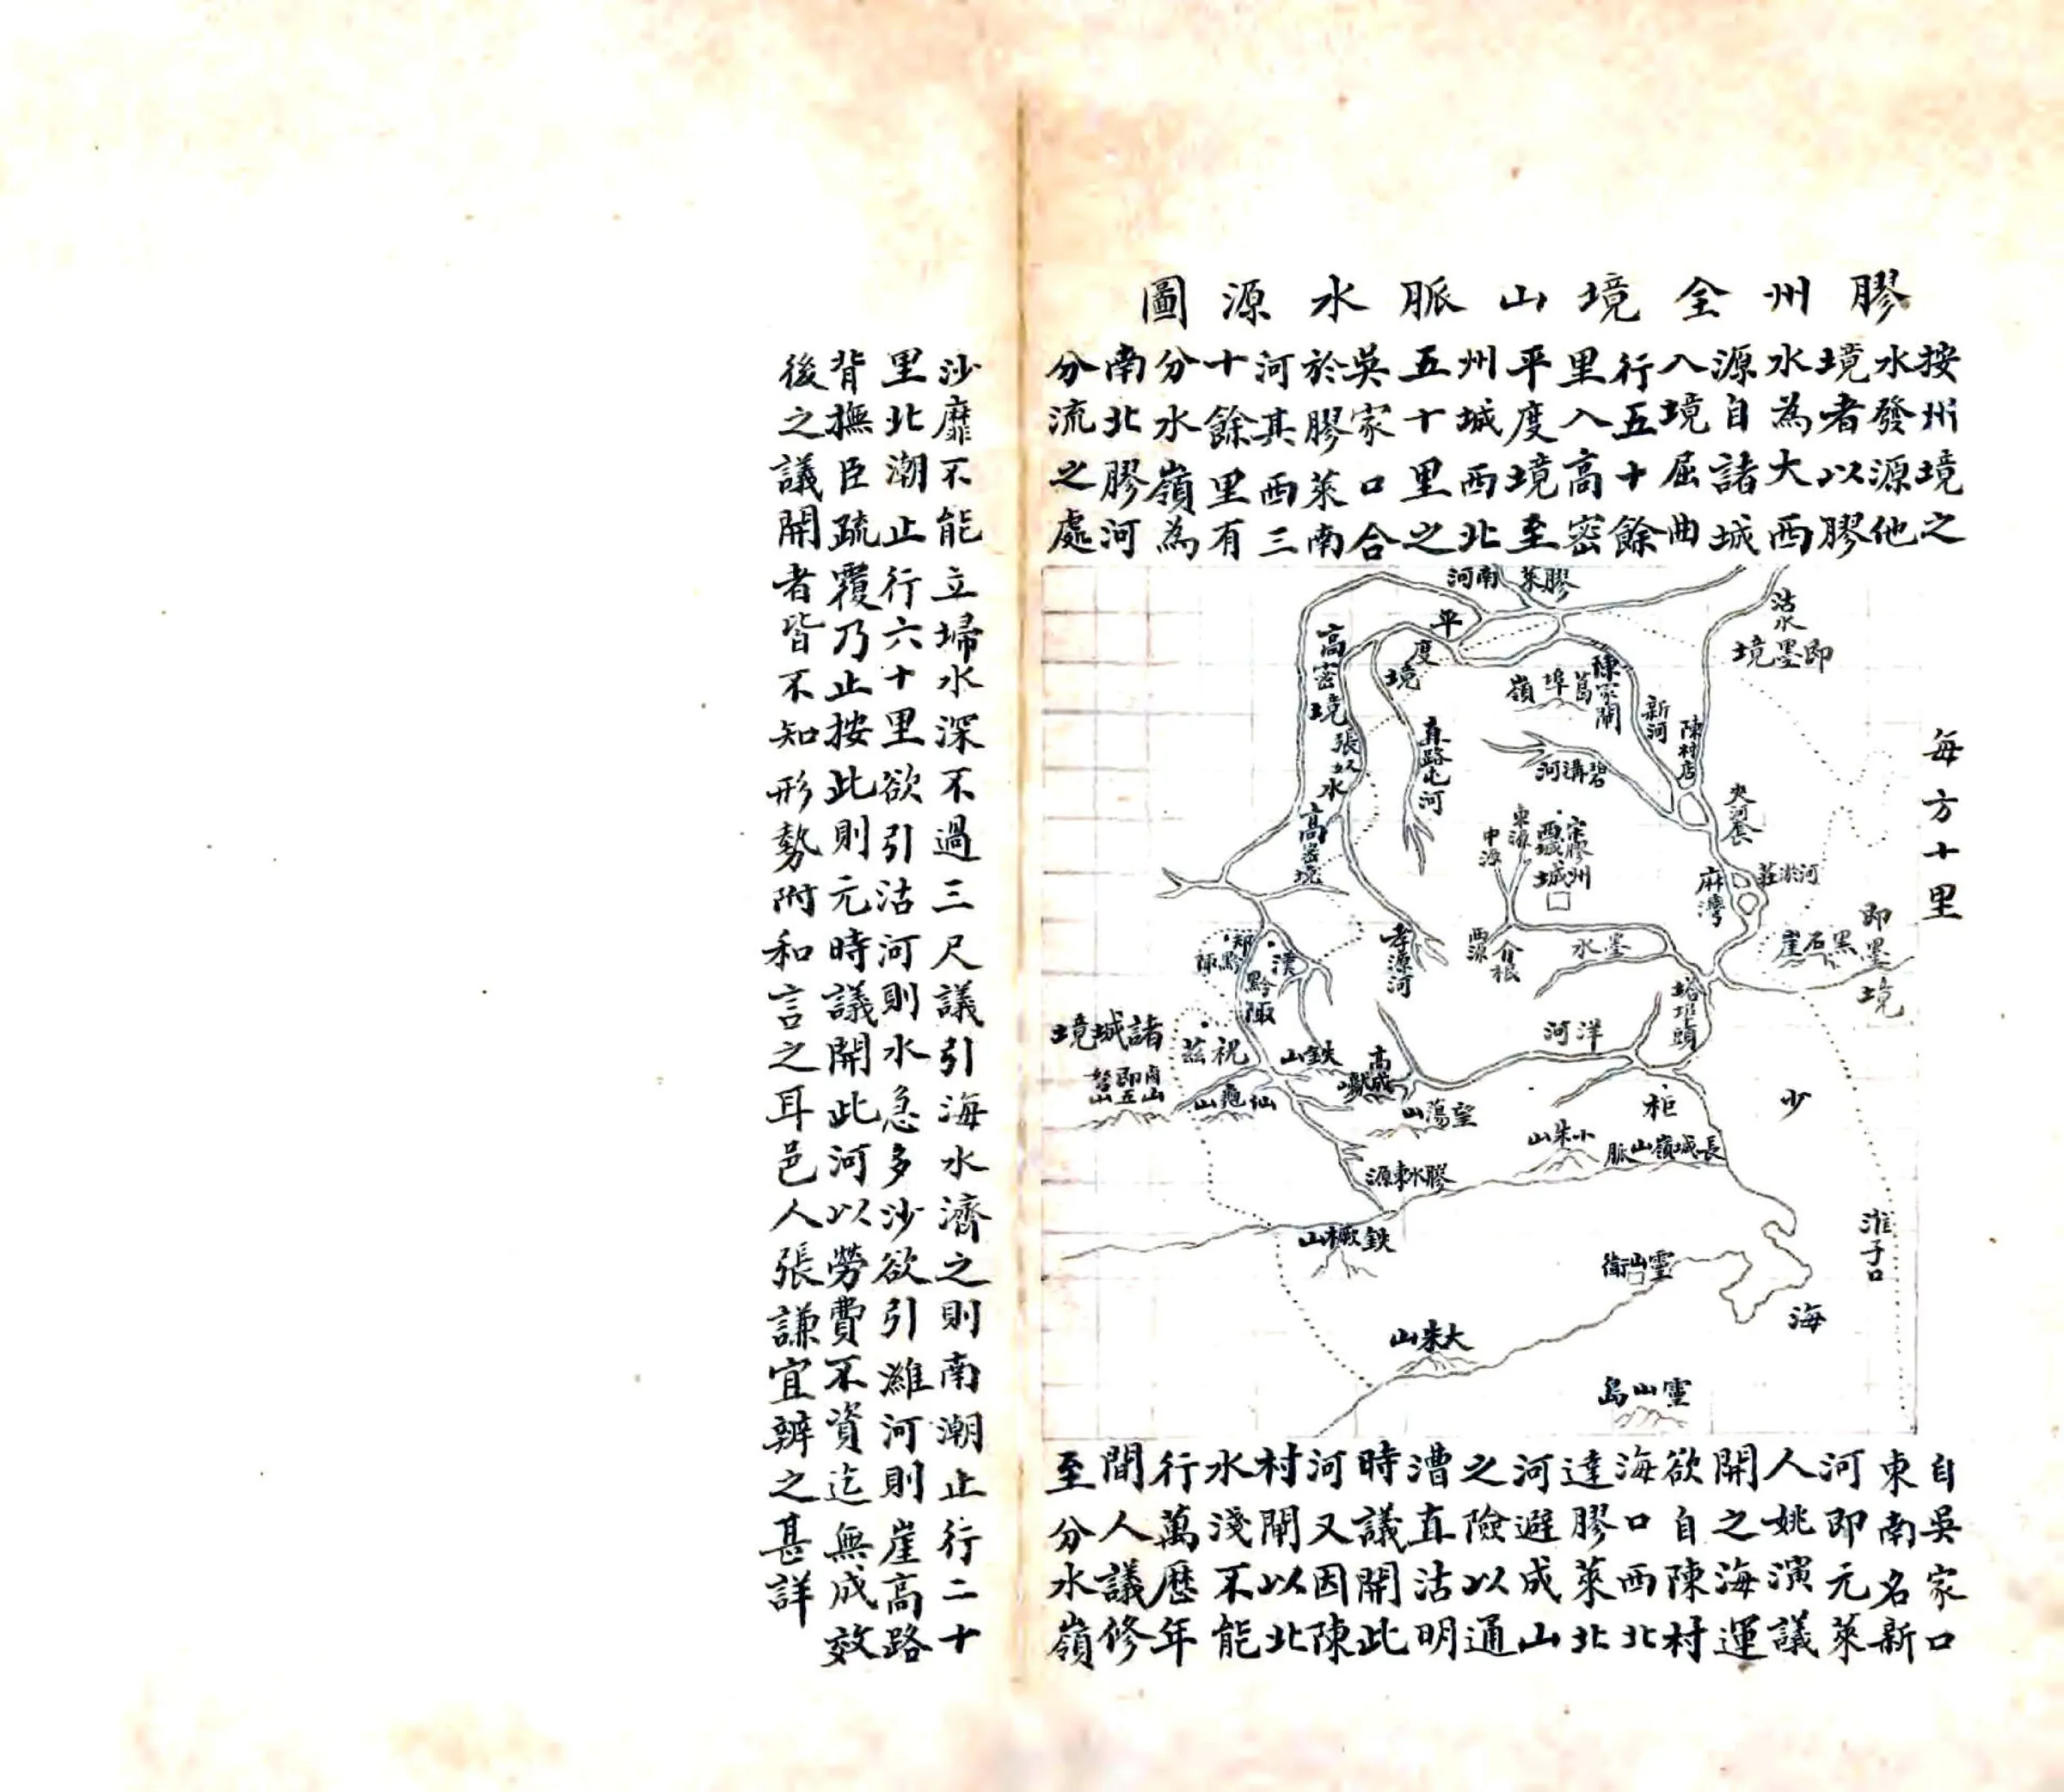 膠州全境山脈水源圖
按州境之
水發源他
境者以膠
水為大西
源自諸城
入境屈曲
行五十餘
里入高密
平度境至
州城西北
五十里之
吳家口合
於膠萊南
河其西三
十餘里有
分水嶺為
南北膠河
分流之處
每方十里
膠萊南河
沽水
即墨境
平度境
高密境
張奴水
高密境
直路屯河
陳家閘
葛埠嶺
新河
陳村店
碧溝河
夾河套
河淤莊
麻灣
宋膠州城
西城
東源
中源
西源
介根
墨水
孝源河
即墨境
黑石崖
塔埠頭
洋河
漢黔陬
郑黔陬
祝茲
諸城境
鐵山
高城
仙龜山
望蕩山
柜
少
海
小朱山
長城嶺山脈
膠水東源
鉄橛山
靈山衛
淮子口
大朱山
靈山島
自吳家口
東南名新
河即元萊
人姚演議
開之海運
欲自陳村
海口西北
達膠萊北
河避成山
之險以通
漕直沽明
時議開此
河又因陳
村閘以北
水淺不能
行萬歷年
間人議修
至分水嶺
沙靡不能立埽水深不過三尺議引海水濟之則南潮止行二十
里北潮止行六十里欲引沽河則水急多沙欲引濰河則崖高路
背撫臣疏覆乃止按此則元時議開此河以勞費不資迄無成效
後之議開者皆不知形勢附和言之耳邑人張謙宜辨之甚詳